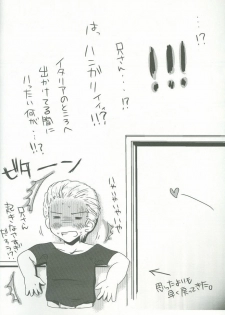 …!?
!!!
兄さん
…!?
はっ
ハンガリィィ!!?
イタリアのところへ
出かけてる間に
いったい何が…
…!!?
ビターン
いやいやいや
兄さん
思ったよりも
早く戻ってきた。